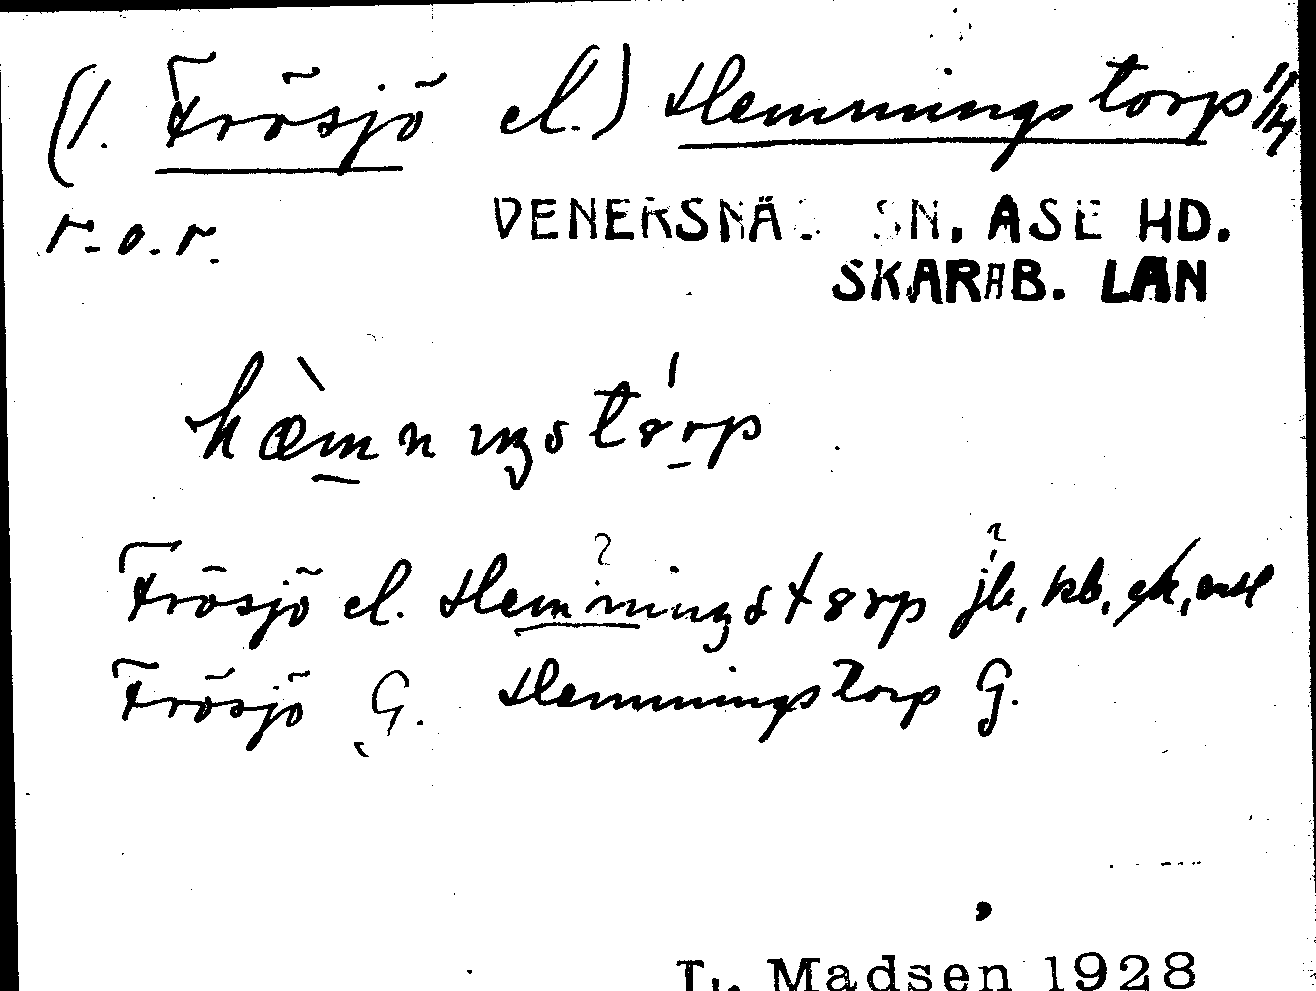 (1. Frösjö el.) Hemmingstorp 1/4
r.o.r.
VENERSNÄS SN. ASE HD.
SKARAB. LÄN
hæ̀mnıŋstɔ́rp
Frösjö el. Hemmingstorp jb, kb,
Frösjö G. Hemmingstorp G.
L. Madsen 1928